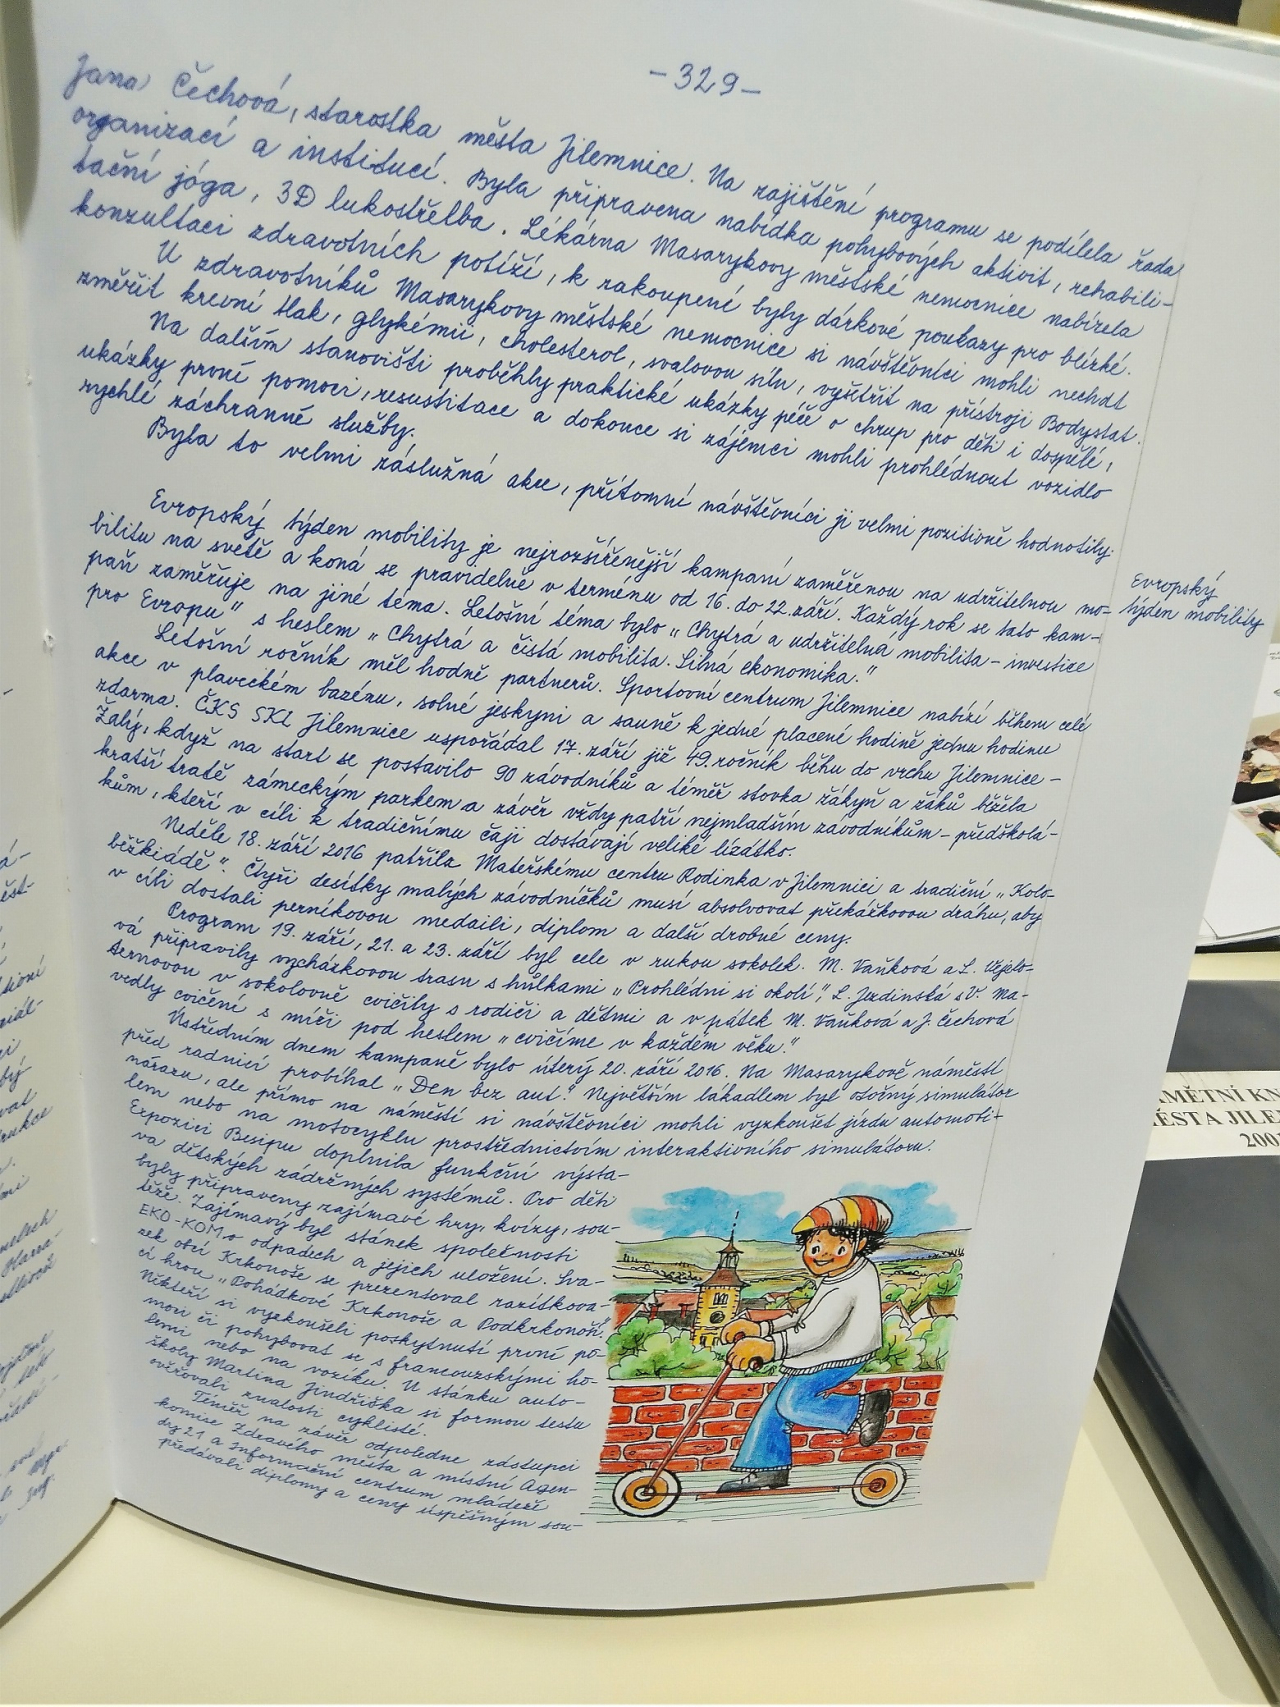 -329-
Jana Čechová, starostka města Jilemnice. Na zajištění programu se podílela řada
organizací a institucí. Byla připravena nabídka pohybových aktivit, rehabili-
tační jóga, 3D lukostřelba. Lékárna Masarykovy městské nemocnice nabízela
konzultaci zdravotních potíží, k zakoupené byly dárkové poukazy pro blízké.
U zdravotníků Masarykovy městské nemocnice si návštěvníci mohli nechat
změřit krevní tlak, glykémii, cholesterol, svalovou sílu, vyšetřit na přístroji Bodystat.
Na dalším stanovišti proběhly praktické ukázky péče o chrup pro děti i dospělé,
ukázky první pomoci, resustitace a dokonce si zájemci mohli prohlédnout vozidlo
rychlé záchranné služby.
Byla to velmi záslužná akce, přítomní návštěvníci ji velmi pozitivně hodnotily.
Evropský týden mobility je nejrozšířenější kampaní zaměřenou na udržitelnou mo-
bilitu na světě a koná se pravidelně v termínu od 16. do 22. září. Každý rok se tato kam-
paň zaměřuje na jiné téma. Letošní téma bylo „Chytrá a udržitelná mobilita - investice
pro Evropu" s heslem „Chytrá a čistá mobilita. Silná ekonomika."
Evropský
týden mobility
Letošní ročník měl hodně partnerů. Sportovní centrum Jilemnice nabízí během celé
akce v plaveckém bazénu, solné jeskyni a sauně k jedné placené hodině jednu hodinu
zdarma. ČKS SKI Jilemnice uspořádal 17. září již 49. ročník běhu do vrchu Jilemnice -
Žalý, když na start se postavilo 90 závodníků a téměř stovka žákyň a žáků běžela
kratší tratě zámeckým parkem a závěr vždy patří nejmladším závodníkům - předškolá-
kům, kteří v cíli k tradičnímu čaji dostávají veliké lízátko.
Neděle 18. září 2016 patřila Mateřskému centru Rodinka v Jilemnici a tradiční „Kolo-
běžkiádě". Čtyři desítky malých závodníčků musí absolvovat překážkovou dráhu, aby
v cíli dostali perníkovou medaili, diplom a další drobné ceny.
Program 19. září, 21. a 23. září byl cele v rukou sokolek. M. Vaňková a L.
vá připravily vycházkovou trasu s hůlkami „Prohlédni si okolí", L. Jerdinská s V. Ma-
ternovou v sokolovně cvičily s rodiči a dětmi a v pátek M. Vaňková a J. Čechová
vedly cvičení s míči pod heslem „cvičíme v každém věku."
Ústředním dnem kampaně bylo úterý 20. září 2016. Na Masarykově náměstí
před radnicí probíhal „Den bez aut". Největším lákadlem byl otočný simulátor
nárazu, ale přímo na náměstí si návštěvníci mohli vyzkoušet jízdu automobi-
lem nebo na motocyklu prostřednictvím interaktivního simulátoru.
Expozici Besipu doplnila funkční výsta-
va dětských zádržných systémů. Pro děti
byly připraveny zajímavé hry, kvízy, sou-
těže. Zajímavý byl stánek společnosti
EKO-KOM o odpadech a jejich uložení. Sva-
zek obcí Krkonoše se prezentoval razítkova-
cí hrou „Pohádkové Krkonoše a Podkrkonoší".
Někteří si vyzkoušeli poskytnutí první po-
moci či pohybovat se s francouzskými ho-
lemi nebo na vozíku. U stánku auto-
školy Martina Jindřiška si formou testu
ověřovali znalosti cyklisté.
Téměř na závěr odpoledne zástupci
komise Zdravého města a místní Agen-
dy 21 a Informační centrum mládeže
předávali diplomy a ceny úspěšným sou-
PAMĚTNÍ KN
MĚSTA JILE
200